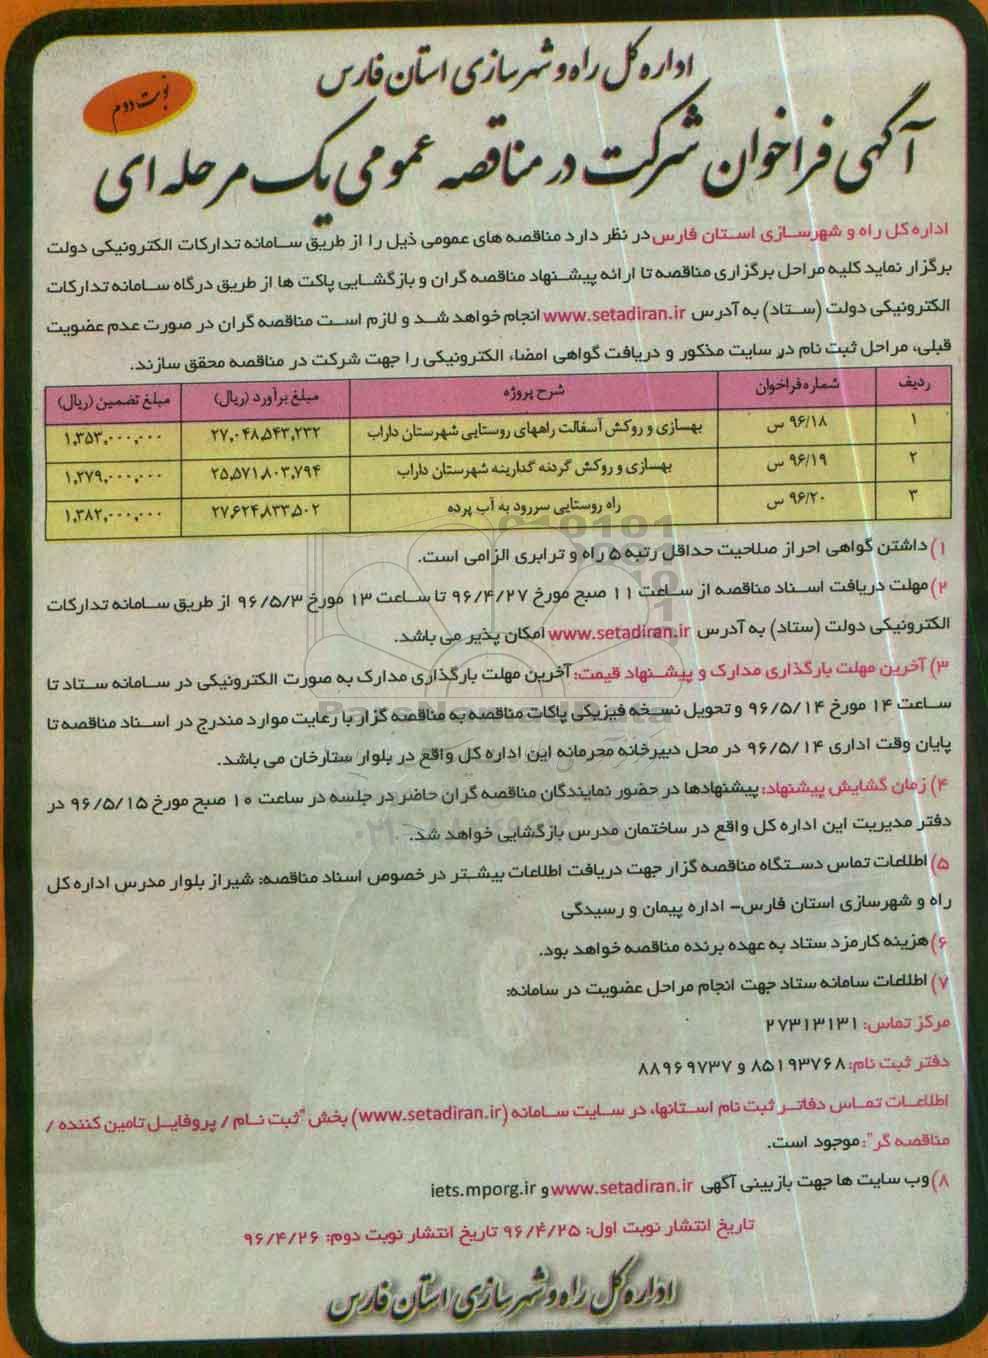 اداره کل راه و شهرسازی استان فارس
نوبت دوم
آگهی فراخوان شرکت در مناقصه عمومی یک مرحله ای
اداره کل راه و شهرسازی استان فارس در نظر دارد مناقصه های عمومی ذیل را از طریق سامانه تدارکات الکترونیکی دولت
برگزار نماید کلیه مراحل برگزاری مناقصه تا ارائه پیشنهاد مناقصه گران و بازگشایی پاکت ها از طریق درگاه سامانه تدارکات
الکترونیکی دولت (ستاد) به آدرس www.setadiran.ir انجام خواهد شد و لازم است مناقصه گران در صورت عدم عضویت
قبلی، مراحل ثبت نام در سایت مذکور و دریافت گواهی امضاء الکترونیکی را جهت شرکت در مناقصه محقق سازند.
ردیف شماره فراخوان شرح پروژه مبلغ برآورد (ریال) مبلغ تضمین (ریال)
۱ ۹۶/۱۸ س بهسازی و روکش آسفالت راههای روستایی شهرستان داراب ۲۷,۰۴۸,۵۴۳,۲۳۲ ۱,۳۵۳,۰۰۰,۰۰۰
۲ ۹۶/۱۹ س بهسازی و روکش گردنه گدارینه شهرستان داراب ۲۵,۵۷۱,۸۰۳,۷۹۴ ۱,۲۷۹,۰۰۰,۰۰۰
۳ ۹۶/۲۰ س راه روستایی سررود به آب پرده ۲۷,۶۲۴,۸۳۳,۵۰۲ ۱,۳۸۲,۰۰۰,۰۰۰
۱) داشتن گواهی احراز صلاحیت حداقل رتبه ۵ راه و ترابری الزامی است.
۲) مهلت دریافت اسناد مناقصه از ساعت ۱۱ صبح مورخ ۹۶/۴/۲۷ تا ساعت ۱۳ مورخ ۹۶/۵/۳ از طریق سامانه تدارکات
الکترونیکی دولت (ستاد) به آدرس www.setadiran.ir امکان پذیر می باشد.
۳) آخرین مهلت بارگذاری مدارک و پیشنهاد قیمت: آخرین مهلت بارگذاری مدارک به صورت الکترونیکی در سامانه ستاد تا
ساعت ۱۴ مورخ ۹۶/۵/۱۴ و تحویل نسخه فیزیکی پاکات مناقصه به مناقصه گزار با رعایت موارد مندرج در اسناد مناقصه تا
پایان وقت اداری ۹۶/۵/۱۴ در محل دبیرخانه محرمانه این اداره کل واقع در بلوار ستارخان می باشد.
۴) زمان گشایش پیشنهاد: پیشنهادها در حضور نمایندگان مناقصه گران حاضر در جلسه در ساعت ۱۰ صبح مورخ ۹۶/۵/۱۵ در
دفتر مدیریت این اداره کل واقع در ساختمان مدرس بازگشایی خواهد شد.
۵) اطلاعات تماس دستگاه مناقصه گزار جهت دریافت اطلاعات بیشتر در خصوص اسناد مناقصه: شیراز بلوار مدرس اداره کل
راه و شهرسازی استان فارس- اداره پیمان و رسیدگی
۶) هزینه کارمزد ستاد به عهده برنده مناقصه خواهد بود.
۷) اطلاعات سامانه ستاد جهت انجام مراحل عضویت در سامانه:
مرکز تماس: ۲۷۳۱۳۱۳۱
دفتر ثبت نام: ۸۵۱۹۳۷۶۸ و ۸۸۹۶۹۷۳۷
اطلاعات تماس دفاتر ثبت نام استانها، در سایت سامانه (www.setadiran.ir) بخش "ثبت نام / پروفایل تامین کننده /
مناقصه گر": موجود است.
۸) وب سایت ها جهت بازبینی آگهی www.setadiran.ir و iets.mporg.ir
تاریخ انتشار نوبت اول: ۹۶/۴/۲۵ تاریخ انتشار نوبت دوم: ۹۶/۴/۲۶
اداره کل راه و شهرسازی استان فارس